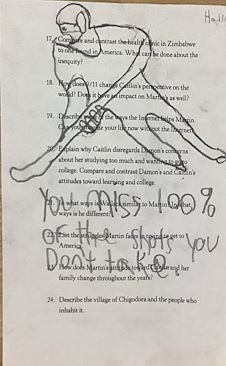 17. Compare and contrast the health clinic in Zimbabwe
to one found in America. What can be done about the
inequity?
18. How does 9/11 change Caitlin's perspective on the
world? Does it have an impact on Martin's as well?
19. Describe the ways the Internet helps Martin.
Can you imagine your life now without the Internet?
20. Explain why Caitlin disregards Damon's concerns
about her studying too much and wanting to go to
college. Compare and contrast Damon's and Caitlin's
attitudes toward learning and college.
YOU MISS 100%
what ways is Wallack similar to Martin? In what
ways is he different?
OF the shots you
List the struggles Martin faces in trying to get to
America.
Don't take.
How does Martin's attitude toward Caitlin and her
family change throughout the years?
24. Describe the village of Chigodora and the people who
inhabit it.